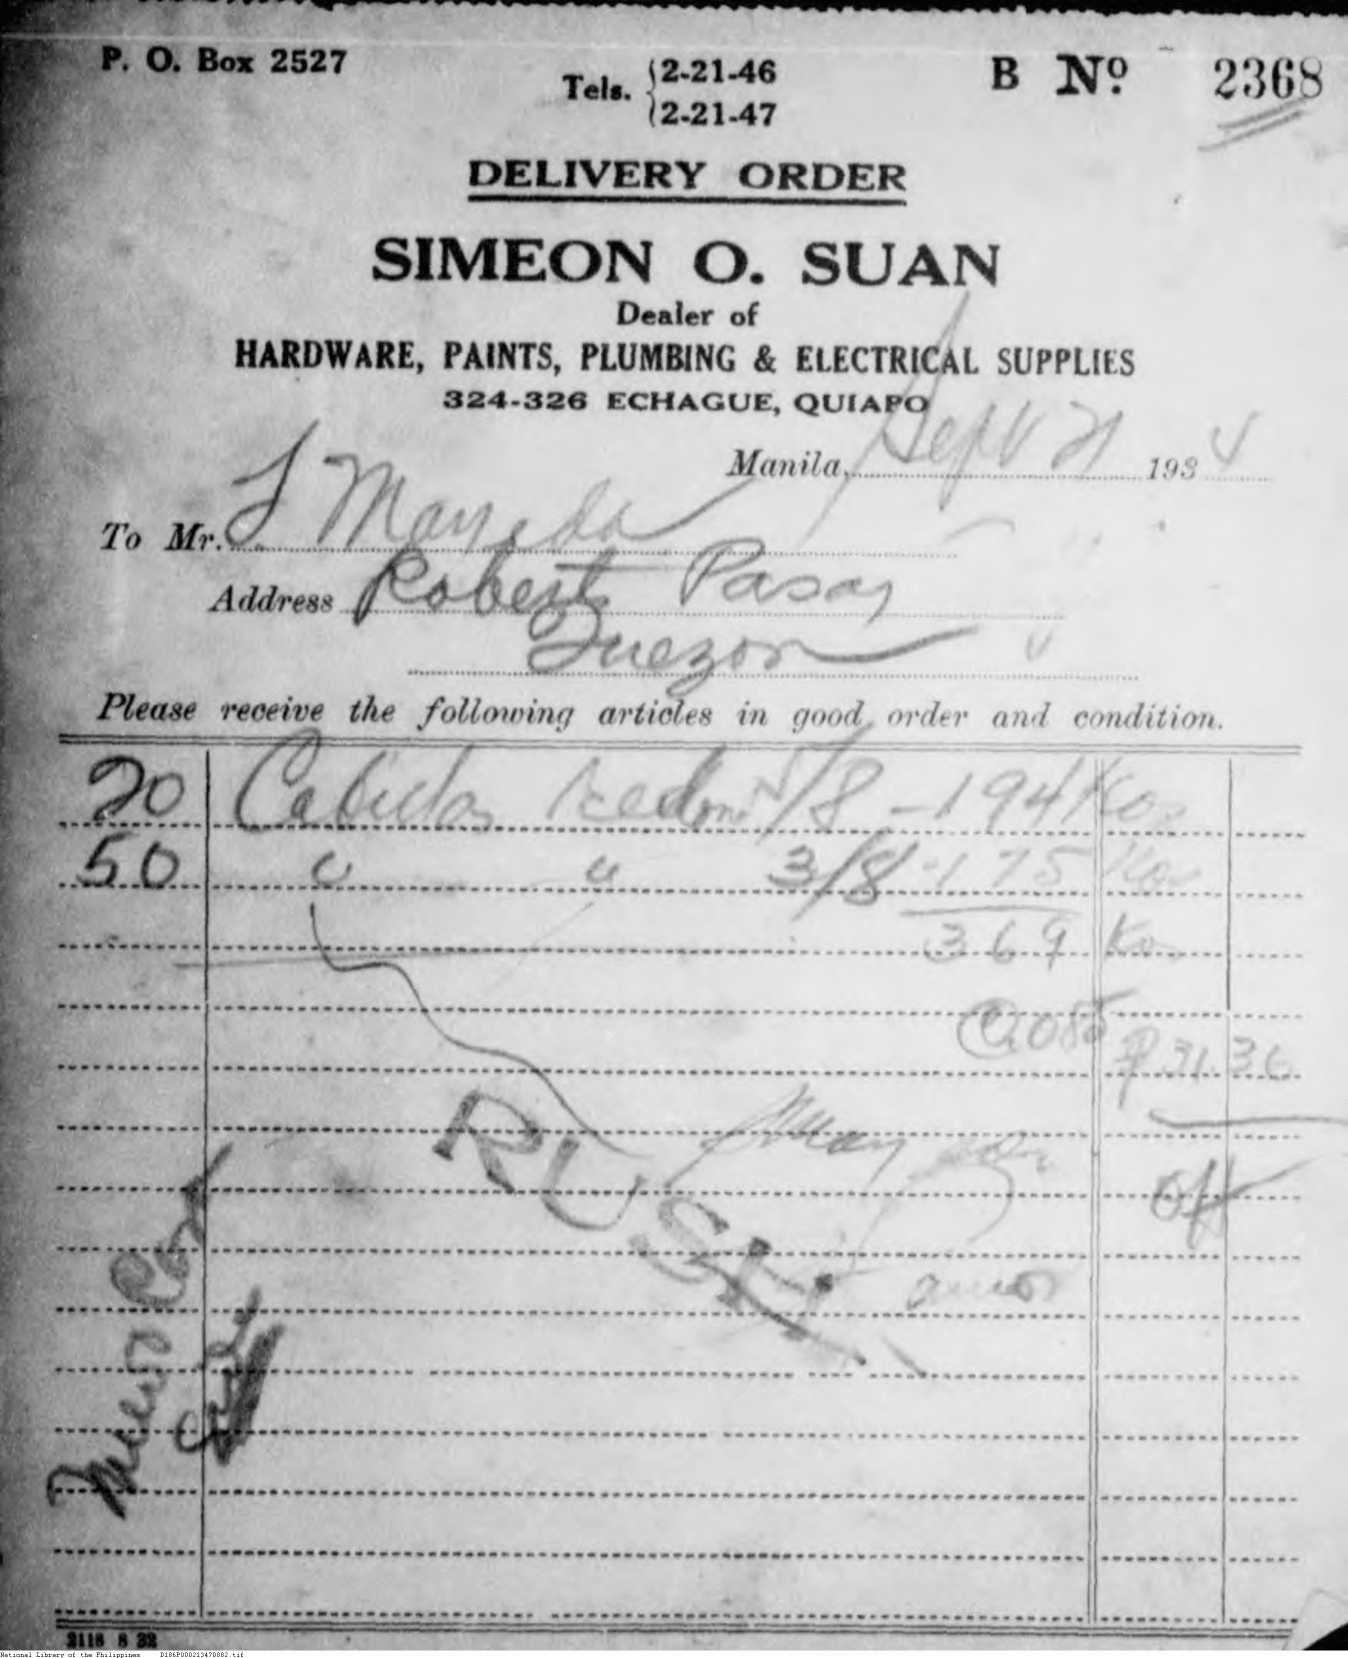 P. O. Box 2527
Tels. 2-21-46
2-21-47
B Nº 2368
DELIVERY ORDER
SIMEON O. SUAN
Dealer of
HARDWARE, PAINTS, PLUMBING & ELECTRICAL SUPPLIES
324-326 ECHAGUE, QUIAPO
Manila, Sept 21 1934
To Mr.
Address Roberts Pasay
Quezon
Please receive the following articles in good order and condition.
20 Cabillas 5/8 - 194 Kos
50 " " 3/8 - 175 Kos
369 Kos
@ .085 ₱ 31.36
RUSH
2118 8 32
National Library of the Philippines D186P000213470882.tif